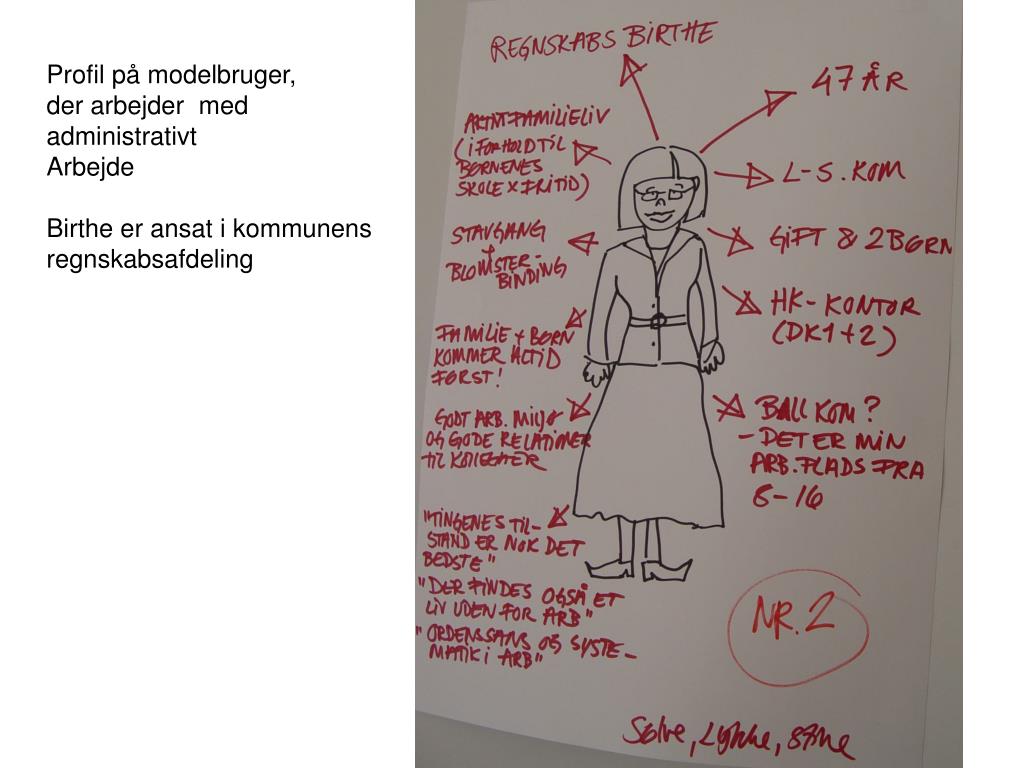 Profil på modelbruger,
der arbejder  med
administrativt
Arbejde
Birthe er ansat i kommunens
regnskabsafdeling
REGNSKABS BIRTHE
47 ÅR
AKTIVT FAMILIELIV
(I FORHOLD TIL
BØRNENES
SKOLE & FRITID)
L-S. KOM
STAVGANG
+
BLOMSTER-
BINDING
GIFT & 2 BØRN
HK-KONTOR
(DK1+2)
FAMILIE + BØRN
KOMMER ALTID
FØRST!
GODT ARB. MILJØ
OG GODE RELATIONER
TIL KOLLEGAER
BALL KOM?
- DET ER MIN
ARB. PLADS FRA
8-16
"TINGENES TIL-
STAND ER NOK DET
BEDSTE"
"DER FINDES OGSÅ ET
LIV UDEN FOR ARB"
"ORDENSSANS OG SYSTE-
MATIK I ARB"
NR. 2
Sølve, Lykke,